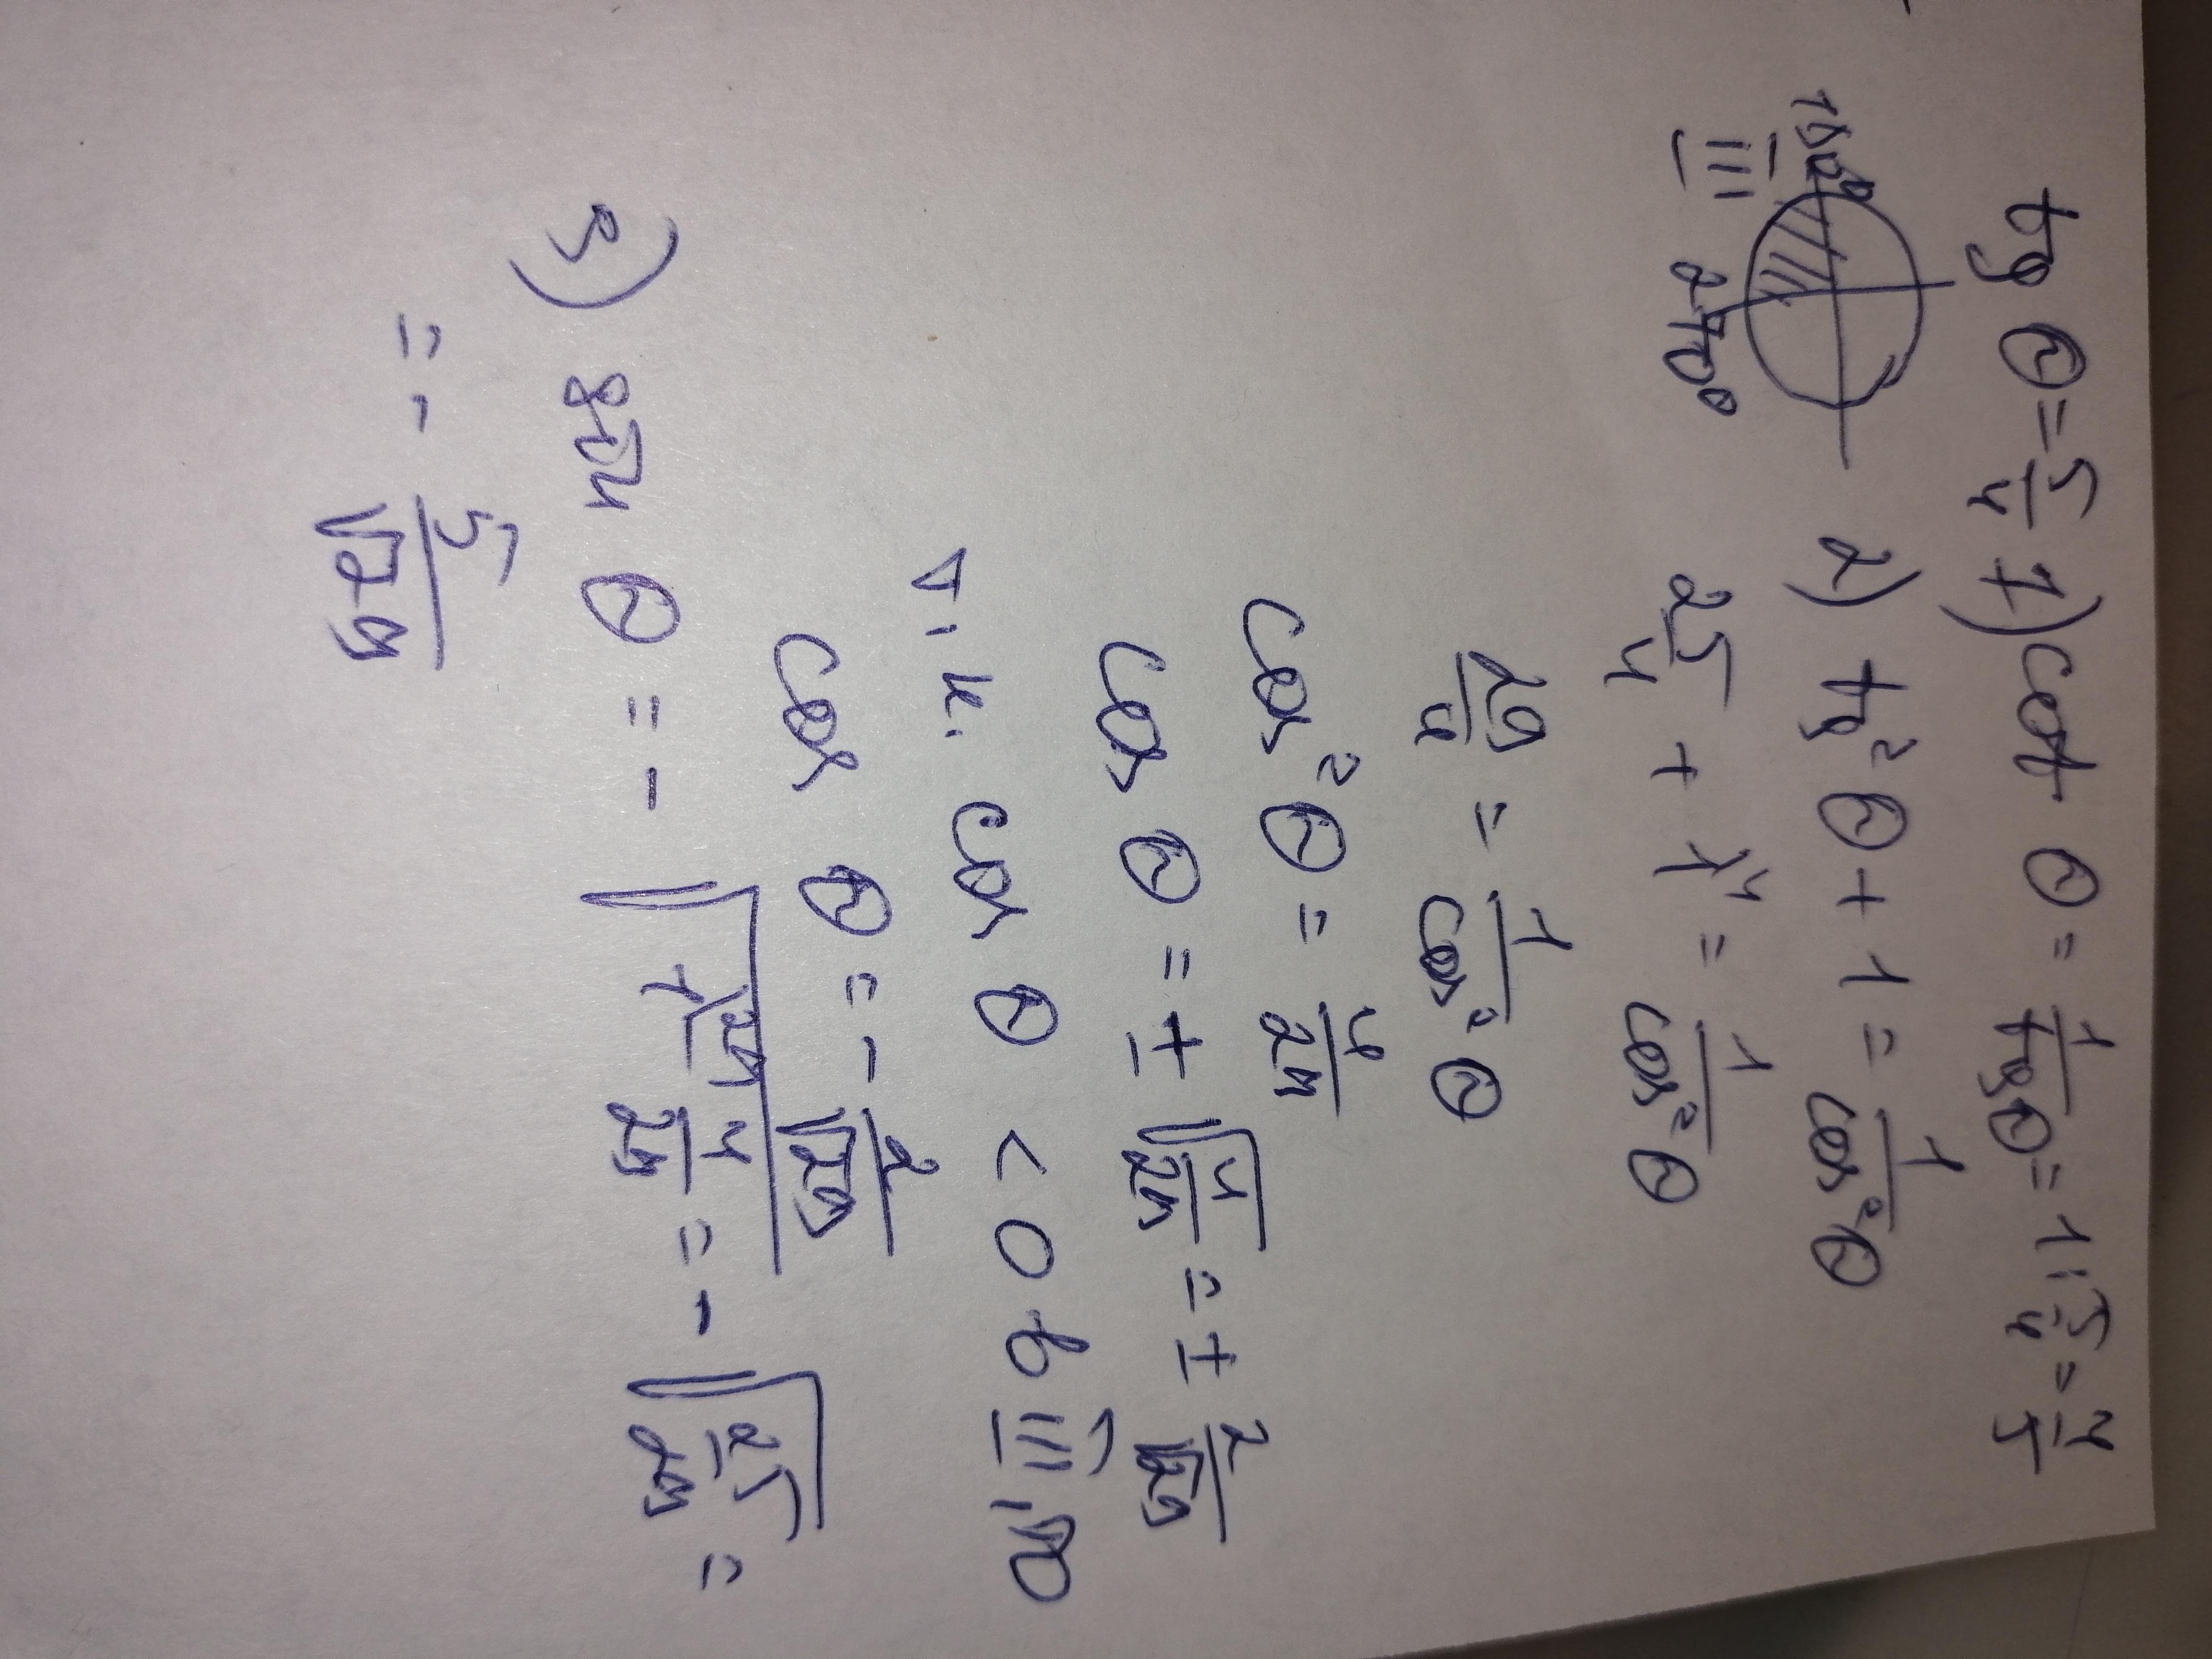 tg θ = 5/2 1) cot θ = 1/tg θ = 1 : 5/2 = 2/5
180°
III 270° 2) tg² θ + 1 = 1/cos² θ
25/4 + 1\4 = 1/cos² θ
29/4 = 1/cos² θ
cos² θ = 4/29
cos θ = ± √(4/29) = ± 2/√29
т.к. cos θ < 0 в III
cos θ = - 2/√29
3) sin θ = - √(1 - 4/29) = - √(25/29) =
= - 5/√29